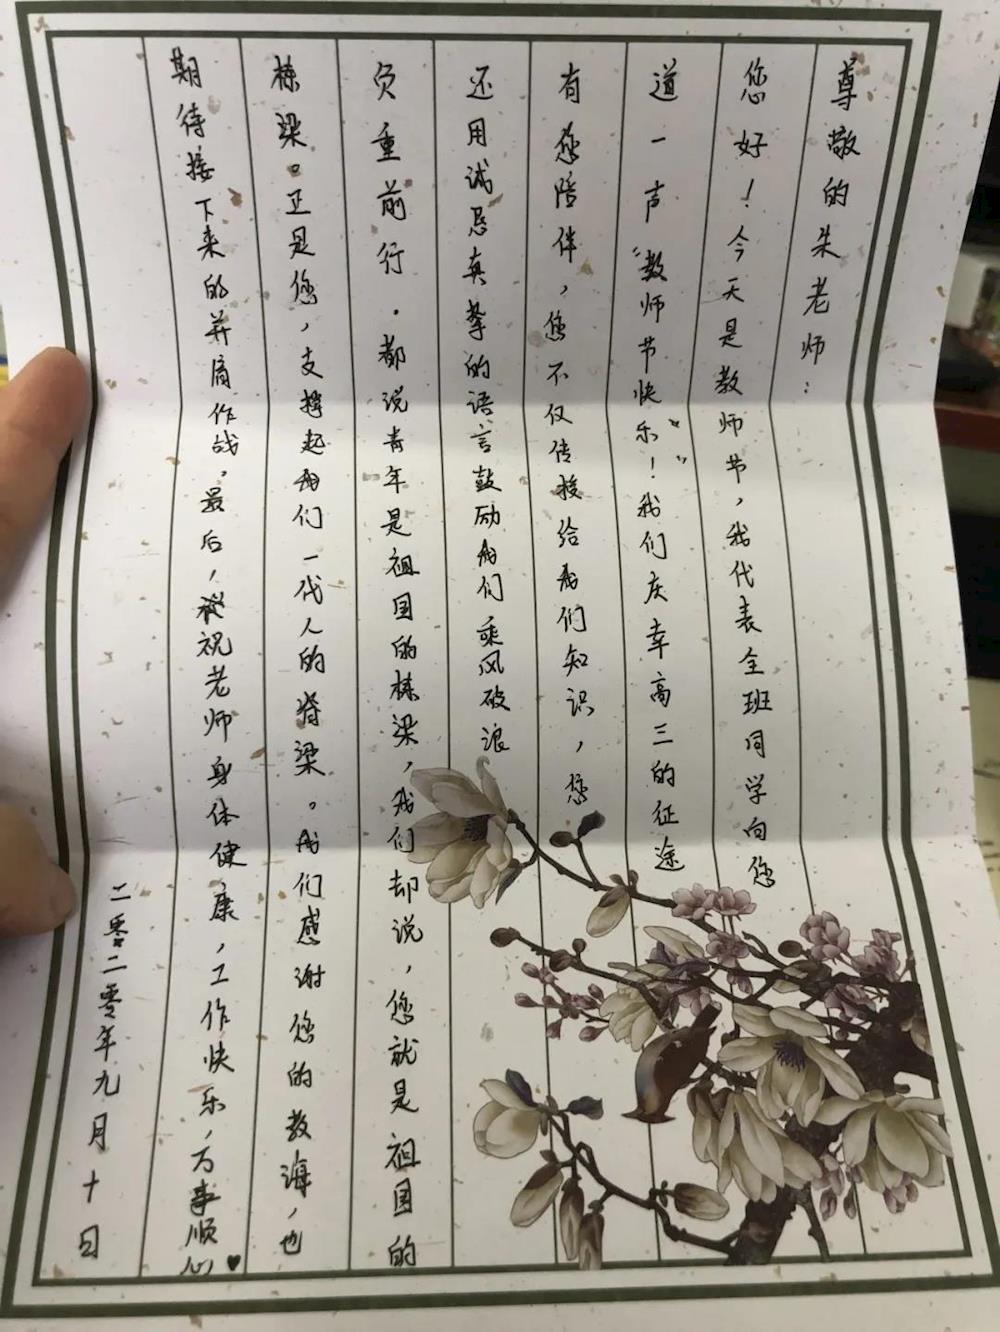 尊敬的朱老师：
您好！今天是教师节，我代表全班同学向您
道一声“教师节快乐！”我们庆幸高三的征途
有您陪伴，您不仅传授给我们知识，您
还用诚恳真挚的语言鼓励我们乘风破浪
负重前行。都说青年是祖国的栋梁，我们却说，您就是祖国的
栋梁。正是您，支撑起我们一代人的脊梁。我们感谢您的教诲，也
期待接下来的并肩作战。最后，祝老师身体健康，工作快乐，万事顺心♥
二零二零年九月十日